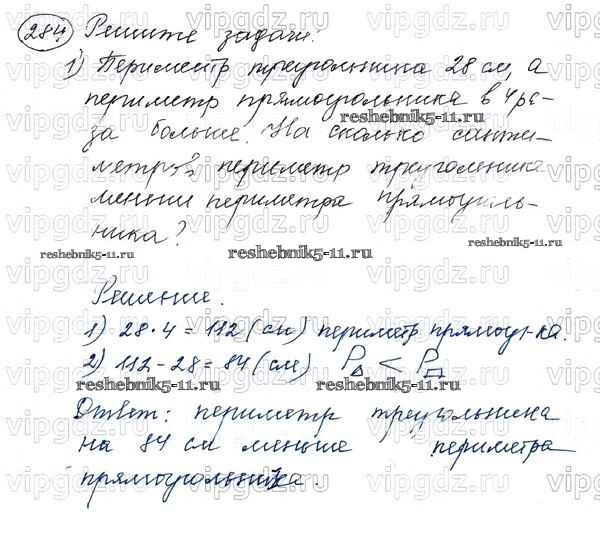 284 Решите задачи:
1) Периметр треугольника 28 см, а
периметр прямоугольника в 4 ра-
за больше. На сколько санти-
метров периметр треугольника
меньш периметра прямоуголь-
ника?
Решение.
1) 28·4=112 (см) периметр прямоуг-ка.
2) 112-28=84 (см) P△ < P▭
Ответ: периметр треугольника
на 84 см меньше периметра
прямоугольника.
reshebnik5-11.ru
reshebnik5-11.ru
reshebnik5-11.ru
reshebnik5-11.ru
reshebnik5-11.ru
reshebnik5-11.ru
vipgdz.ru